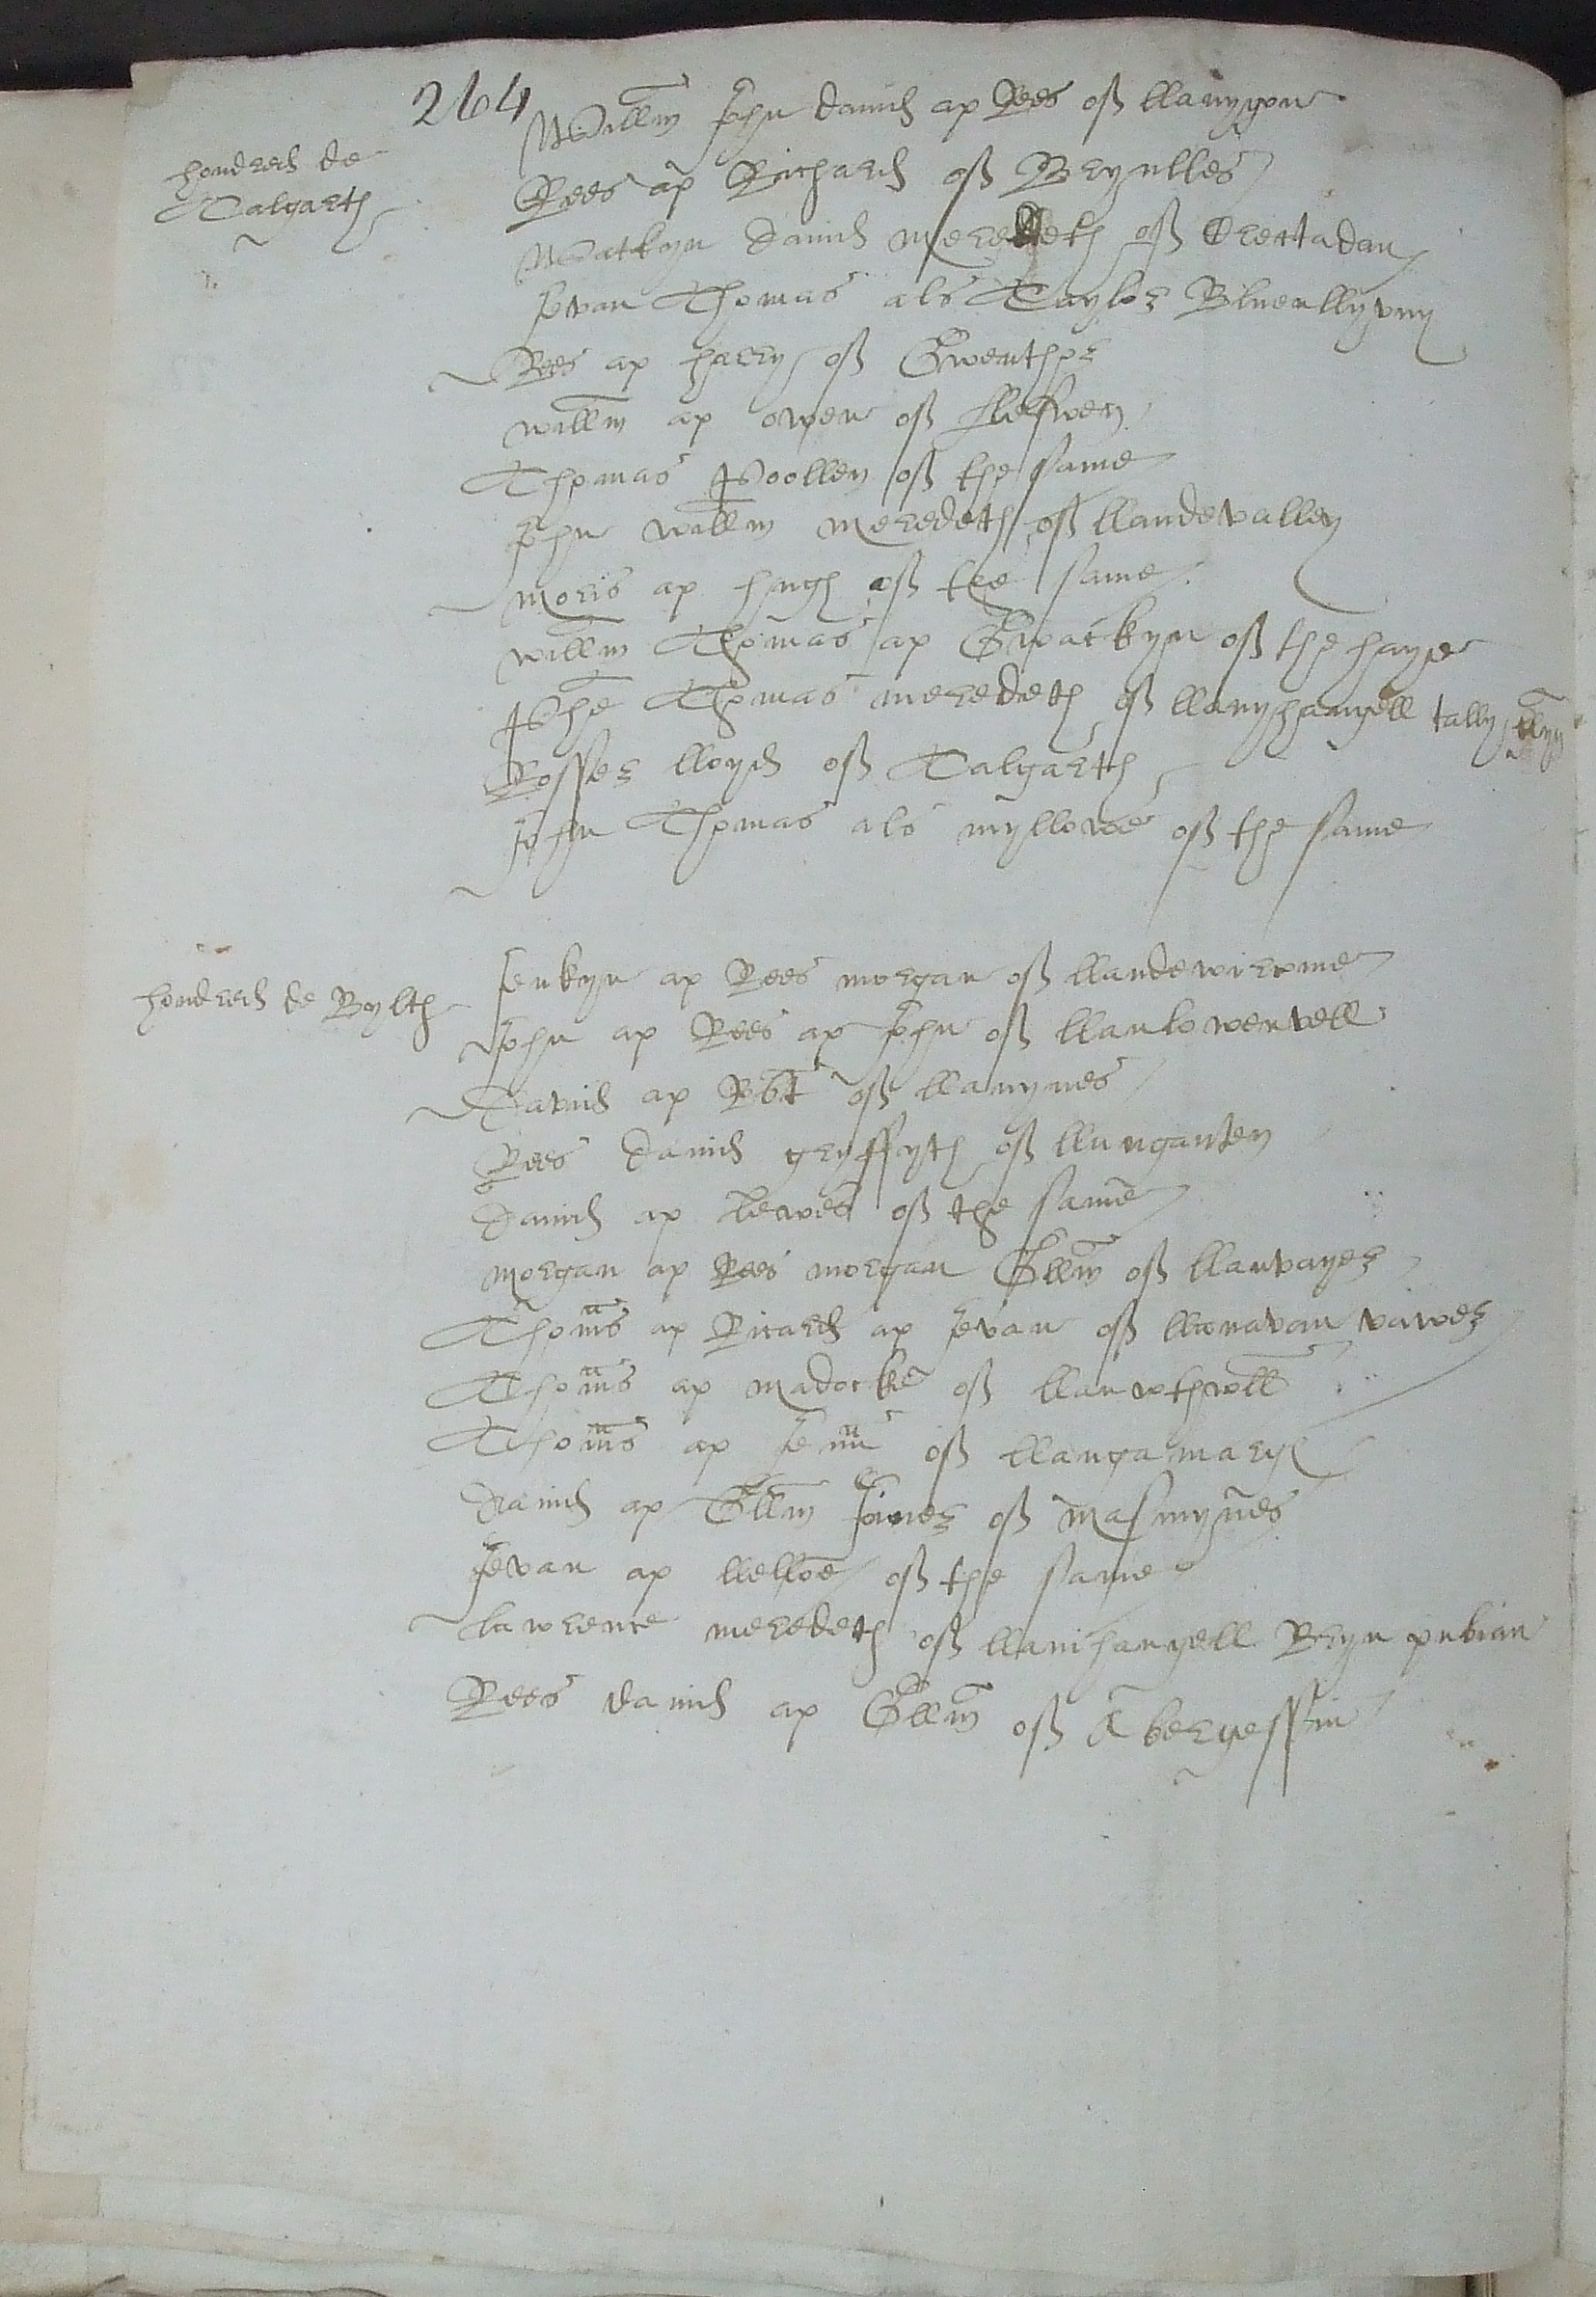 264
hondred de
Talgarth
Willm John david ap Rees off llanygon
Rees ap Richard off Brynlles
Watkyn david meredeth off Trertadan
Jevan Thomas als Taylor Blaenllyvny
Rees ap harry off Gwenthor
willm ap owen off lleswen
Thomas Poollen off the same
John willm meredeth off llandevalley
moris ap hugh off the same
willm Thomas ap Gwatkyn off the haye
Phe Thomas meredeth off llanyhangell tally llyn
Rosser lloyd off Talgarth
John Thomas als myllowe off the same
hondred de Bylth
Jenkyn ap Rees morgan off llandewircwme
John ap Rees ap John off llanlowenvell
David ap Rbt off llanynes
Rees david gryffyth off llanganten
david ap lewes off the same
morgan ap Rees morgan Gllm off llanvayer
Thoms ap Ricard ap Jevan off llanavan vawer
Thoms ap madocke off llanwthwll
Thoms ap Jenn off llangamarch
david ap Gllm Joiner off masmynes
Jevan ap llelloe off the same
lawrence meredeth off llanihangell Bryn pabian
Rees david ap Gllm off Abergessin